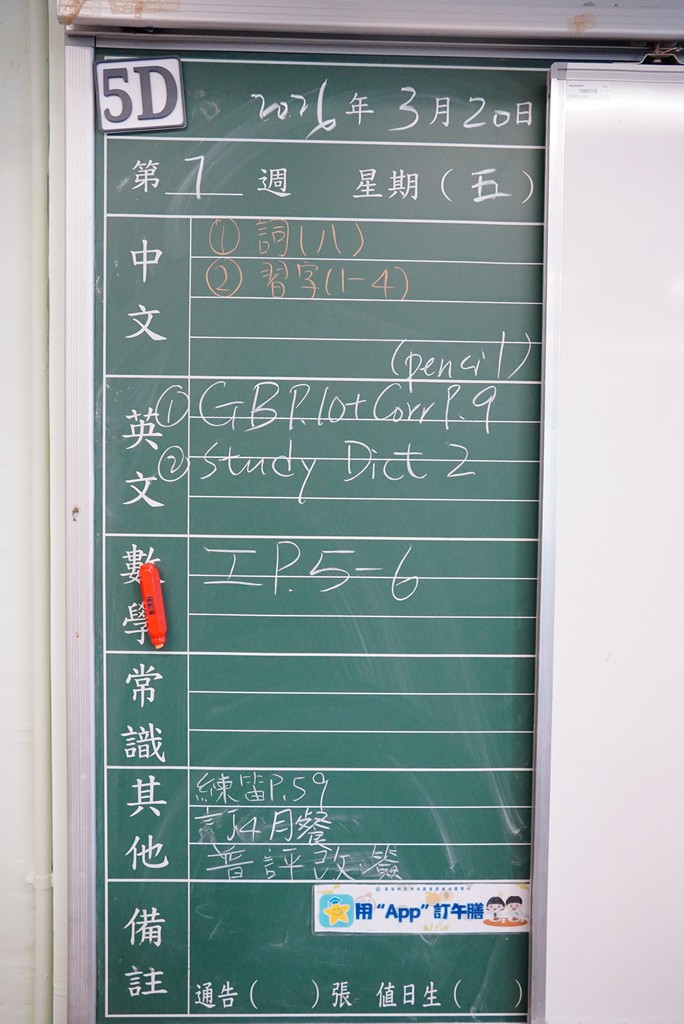 5D
2026年3月20日
第 7 週 星期(五)
中文
① 詞(八)
② 習字(1-4)
(pencil)
英文
① GB P.10 + Corr P.9
② Study Dict 2
數學
工 P.5-6
常識
其他
練笛P.59
訂4月餐
普評改、簽
備註
用“App”訂午膳
通告( )張 值日生( )